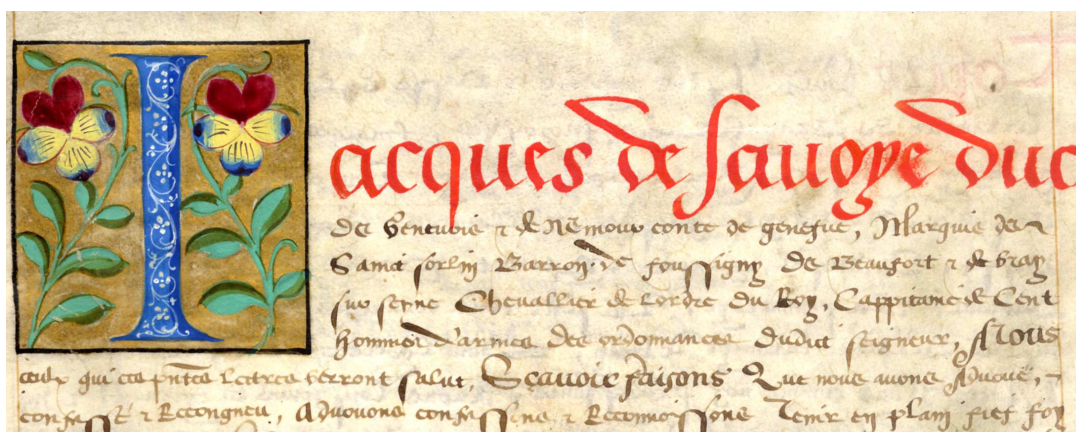 Jacques de Savoye duc
de Genevois & de Nemoux conte de genefve, Marquis de
Sainct sorlin Barron de foussigny de Beaufort & de bray
sus senne Chevallier de lordre du Roy, Cappitaine de Cent
hommes d'armes des ordonnances dudict seigneur, A tous
ceulx qui ces pntes lettres verront salut, Scavoir faisons Que nous avons Advoué,
confessé & Recongneu, Advouons confessons & Recongnoissons Tenir en plain fief foy